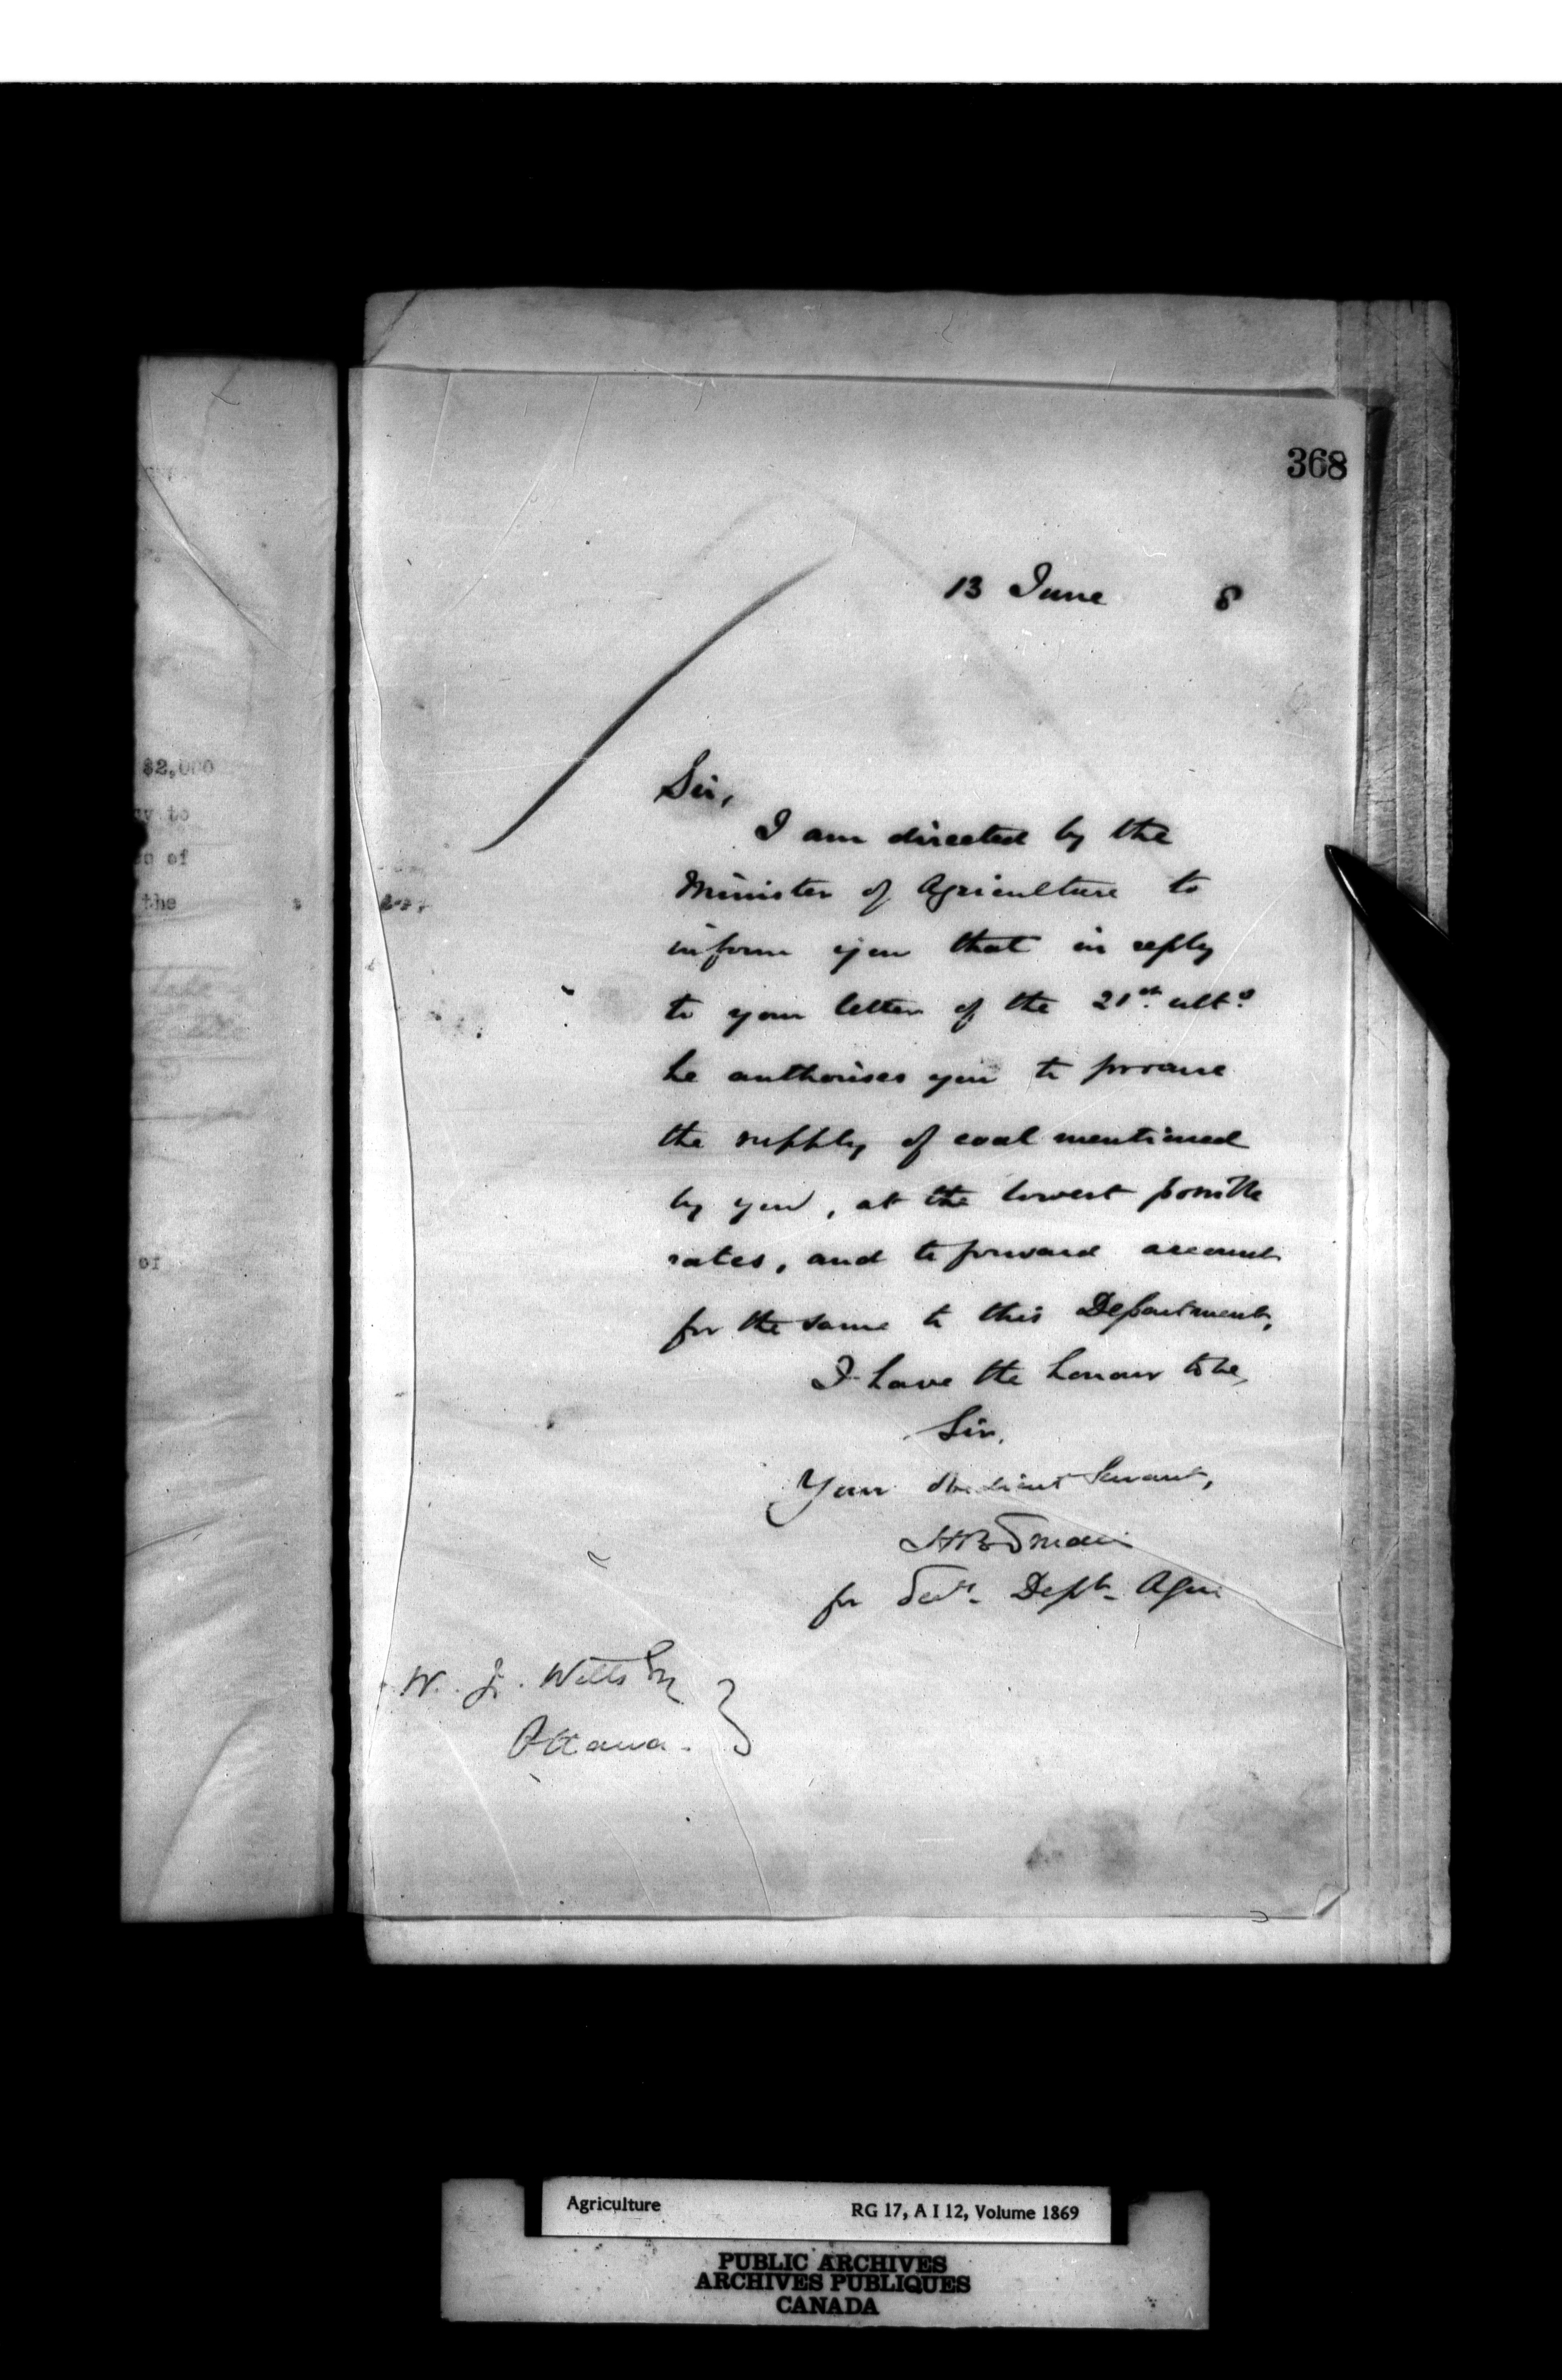 368
13 June 8
Sir,
I am directed by the
Minister of Agriculture to
inform you that in reply
to your letter of the 21st ulto
he authorises you to procure
the supply of coal mentioned
by you, at the lowest possible
rates, and to forward account
for the same to this Department.
I have the honour to be,
Sir,
Your obedient Servant,
for Secy. Dept. Agri
W. J. Wills
Ottawa.
$2,000
to
of
the
of
Agriculture RG 17, A I 12, Volume 1869
PUBLIC ARCHIVES
ARCHIVES PUBLIQUES
CANADA